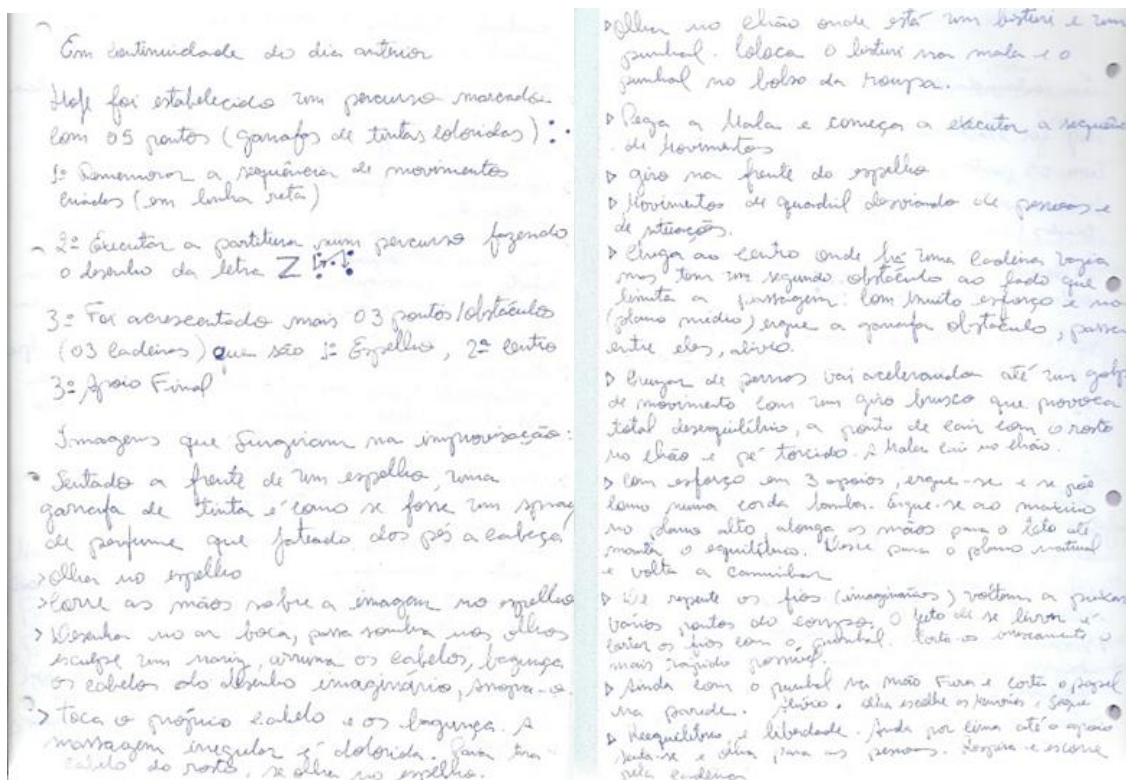 Em continuidade do dia anterior
Hoje foi estabelecido um percurso marcado
com 05 pontos (garrafas de tintas coloridas)
1º Rememorar a sequência de movimentos
criados (em linha reta)
2º Executar a partitura num percurso fazendo
o desenho da letra Z
3º Foi acrescentado mais 03 pontos/obstáculos
(03 cadeiras) que são 1º Espelho, 2º centro
3º Apoio Final
Imagens que surgiram na improvisação:
Sentado a frente de um espelho, uma
garrafa de tinta é como se fosse um spray
de perfume que jateado dos pés a cabeça
> olha no espelho
> Corre as mãos sobre a imagem no espelho
> Desenha no ar boca, passa sombra nos olhos
esculpe um nariz, arruma os cabelos, bagunça
os cabelos do desenho imaginário, sopra-o.
> Toca o próprio cabelo e os bagunça. A
massagem irregular é dolorida. Para tira
cabelo do rosto, se olha no espelho.
Olha no chão onde está um bisturi e um
punhal. Coloca o bisturi na mala e o
punhal no bolso da roupa.
Pega a Mala e começa a executar a sequência
de Movimentos
giro na frente do espelho
Movimentos de quadril desviando de pessoas e
de situações.
Chega ao centro onde há uma cadeira vazia
mas tem um segundo obstáculo ao lado que
limita a passagem: Com muito esforço e
(plano médio) ergue a garrafa obstáculo, passa
entre eles, alívio.
Cruzar de pernas vai acelerando até um golpe
de movimento com um giro brusco que provoca
total desequilíbrio, a ponto de cair com o rosto
no chão e pé torcido. A Mala cai no chão.
Com esforço em 3 apoios, ergue-se e se põe
como numa corda bamba. Ergue-se ao máximo
no plano alto alonga as mãos para o teto até
manter o equilíbrio. Desce para o plano natural
e volta a caminhar
De repente os fios (imaginários) voltam a
vários pontos do corpo. O jeito de se livrar é
cortar os fios com o punhal. Corta-os bruscamente o
mais rápido possível.
Ainda com o punhal na mão Fura e corta o papel
na parede. Alívio. olha escolhe os
Reequilíbrio, e liberdade. Anda por cima até o apoio
senta-se e olha para as pessoas. Respira e escorre
pela cadeira